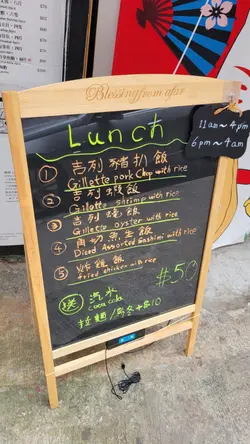 Blessing from afar
Lunch
11am~4pm
6pm~4am
① 吉列豬扒飯
Gillette pork Chop with rice
② 吉列蝦飯
Gillette shrimp with rice
③ 吉列蠔飯
Gillette oyster with rice
④ 角切魚生飯
Diced Assorted Sashimi with rice
⑤ 炸雞飯
fried chicken with rice
#50
送 汽水
coca cola
拉麵/烏冬+$10